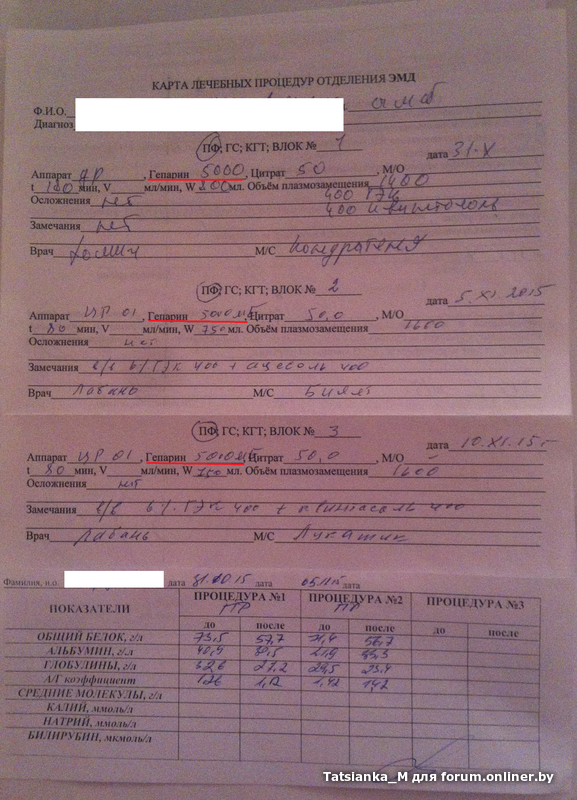 КАРТА ЛЕЧЕБНЫХ ПРОЦЕДУР ОТДЕЛЕНИЯ ЭМД
Ф.И.О. амб.
Диагноз
ПФ; ГС; КГТ; ВЛОК № 1
дата 31.X
Аппарат , Гепарин 5000, Цитрат 50, М/О
t мин, V мл/мин, W 800 мл. Объём плазмозамещения 1400
400 ГЭК
Осложнения нет 400
Замечания нет
Врач М/С Кондратеня
ПФ; ГС; КГТ; ВЛОК № 2
дата 5.XI 2015
Аппарат 01, Гепарин 5000, Цитрат 50,0, М/О
t 80 мин, V мл/мин, W 750 мл. Объём плазмозамещения
Осложнения нет
Замечания в/в 6% ГЭК 400 + ацесоль 400
Врач Лабань М/С
ПФ; ГС; КГТ; ВЛОК № 3
дата 10.XI.15г
Аппарат 01, Гепарин 5000, Цитрат 50,0, М/О
t 80 мин, V мл/мин, W 750 мл. Объём плазмозамещения 1600
Осложнения нет
Замечания в/в 6% ГЭК 400 + 400
Врач Лабань М/С Лукатик
Фамилия, и.о. дата 31.10.15 дата дата
ПОКАЗАТЕЛИ ПРОЦЕДУРА №1 ПРОЦЕДУРА №2 ПРОЦЕДУРА №3
до после до после до после
ОБЩИЙ БЕЛОК, г/л 73,5 57,7
АЛЬБУМИН, г/л 40,9
ГЛОБУЛИНЫ, г/л 32,6 27,2 23,4
А/Г коэффициент 1,42
СРЕДНИЕ МОЛЕКУЛЫ, г/л
КАЛИЙ, ммоль/л
НАТРИЙ, ммоль/л
БИЛИРУБИН, мкмоль/л
Tatsianka_M для forum.onliner.by